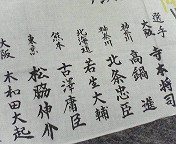 選手
大阪 寺本将司
神奈川 高鍋 進
神奈川 北条忠臣
北海道 若生大輔
熊本 古澤庸臣
東京 松脇伸介
大阪 木和田大起